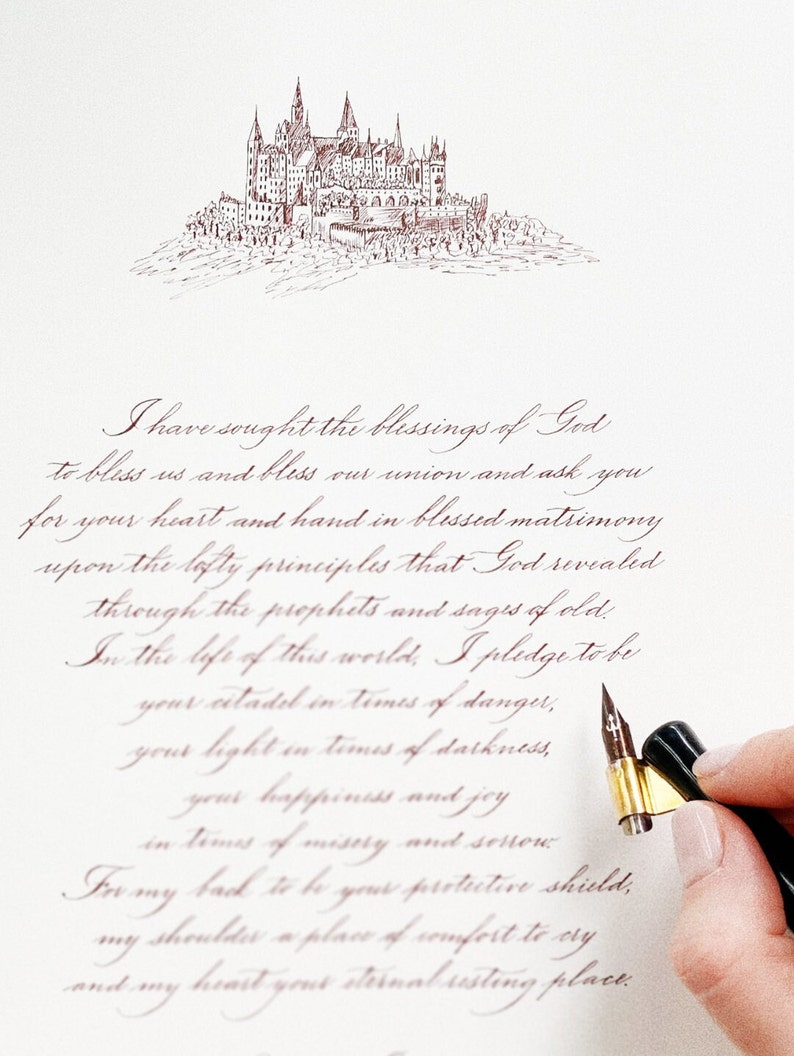 I have sought the blessings of God
to bless us and bless our union and ask you
for your heart and hand in blessed matrimony
upon the lofty principles that God revealed
through the prophets and sages of old.
In the life of this world, I pledge to be
your citadel in times of danger,
your light in times of darkness,
your happiness and joy
in times of misery and sorrow.
For my back to be your protective shield,
my shoulder a place of comfort to cry
and my heart your eternal resting place.